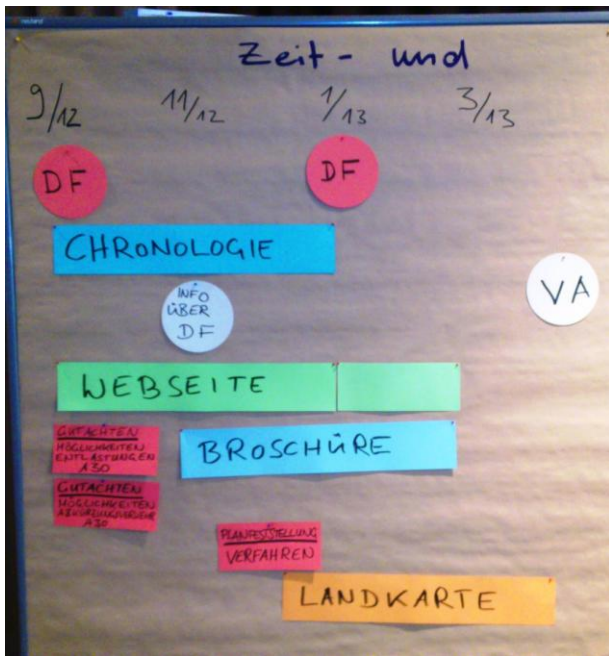 Zeit - und
9/12 11/12 1/13 3/13
DF
DF
CHRONOLOGIE
VA
INFO
ÜBER
DF
WEBSEITE
GUTACHTEN
MÖGLICHKEITEN
ENTLASTUNGEN
A30
BROSCHÜRE
GUTACHTEN
MÖGLICHKEITEN
A30
PLANFESTSTELLUNG
VERFAHREN
LANDKARTE